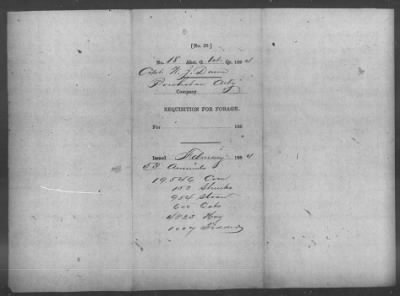 [No. 33]
No. 18 Abst. G. 1st Qr. 186 4
Capt W. J. Dance
Powhatan Arty
Company.
REQUISITION FOR FORAGE.
For 186
Issued February 186 4
Animals
19,546 Corn
153 Shucks
904 Straw
600 Oats
4823 Hay
1007 Fodder